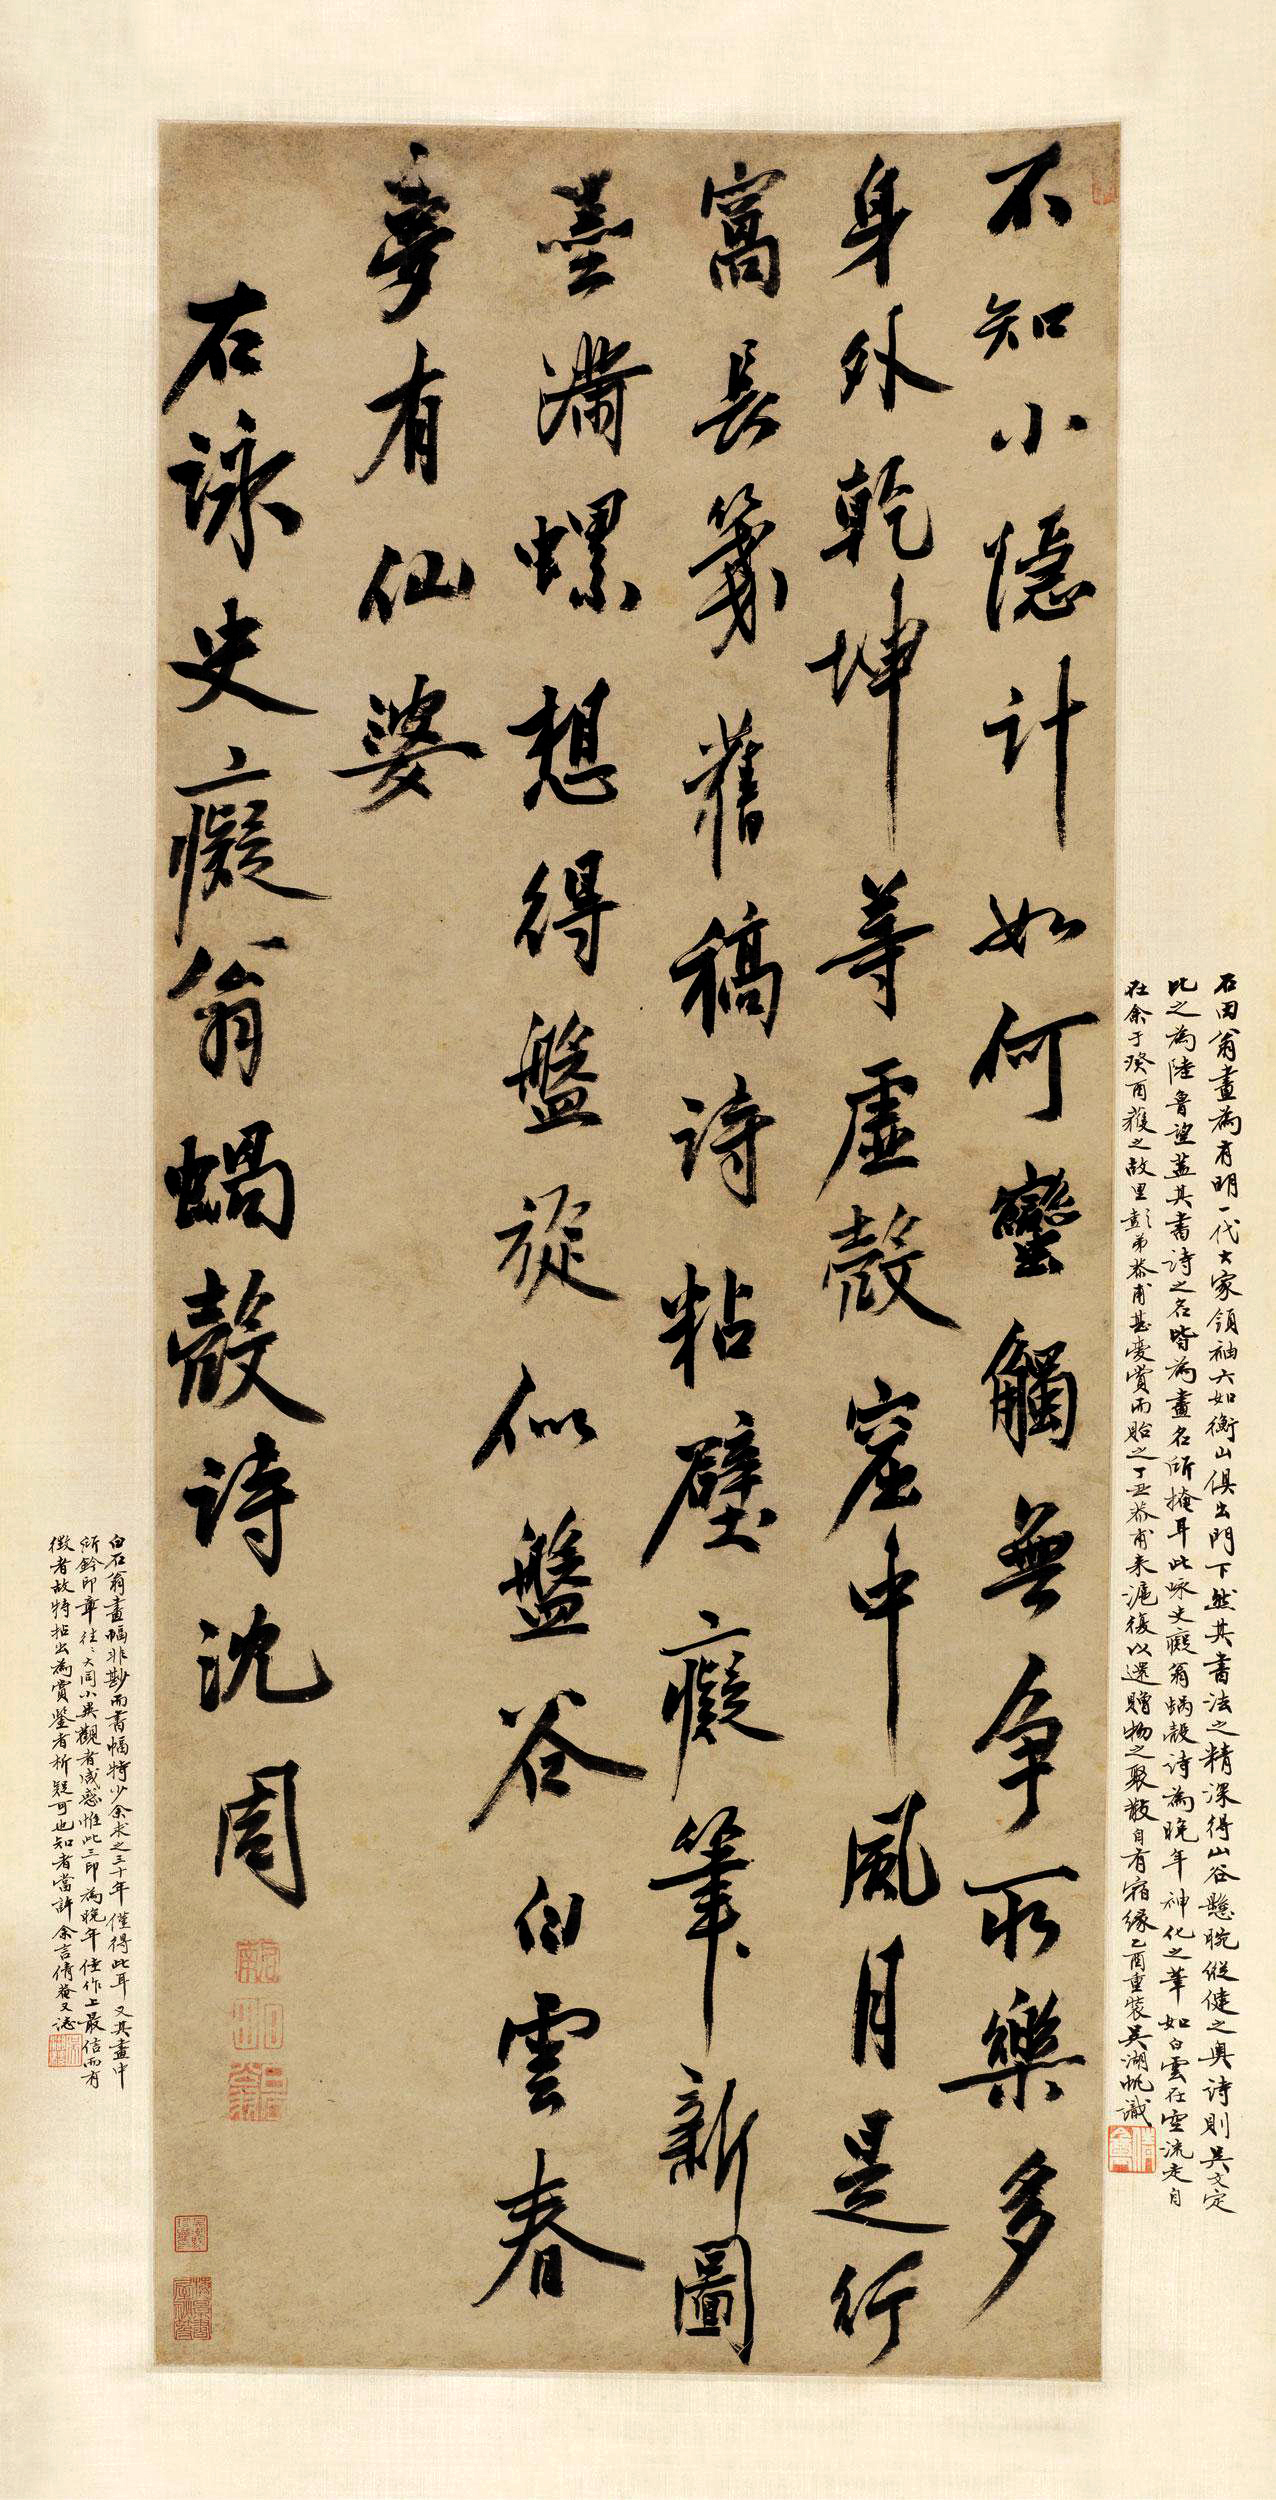 不知小隱計如何蠻觸無争所樂多
身外乾坤等虛殼窟中風月是行
窩長箋舊稿詩粘壁癡筆新圖
墨滿螺想得盤旋似盤谷白雲春
夢有仙婆
右詠史癡翁蝸殼詩沈周
石田翁畫為有明一代大家領袖六如衡山俱出門下然其書法之精深得山谷懸腕縱健之奧詩則吳文定
比之為陸魯望蓋其書詩之名皆為畫名所掩耳此咏史癡翁蝸殼詩為晚年神化之筆如白雲在空流走自
在余于癸酉獲之故里彭弟恭甫甚愛賞而貽之丁丑恭甫来滬復以還贈物之聚散自有宿緣乙酉重裝吳湖帆識
白石翁畫幅非尠而書幅特少余求之三十年僅得此耳又其畫中
所鈐印章往〻大同小異觀者咸惑惟此三印為晚年佳作上最信而有
徵者故特拈出為賞鑒者析疑可也知者當許余言倩菴又誌